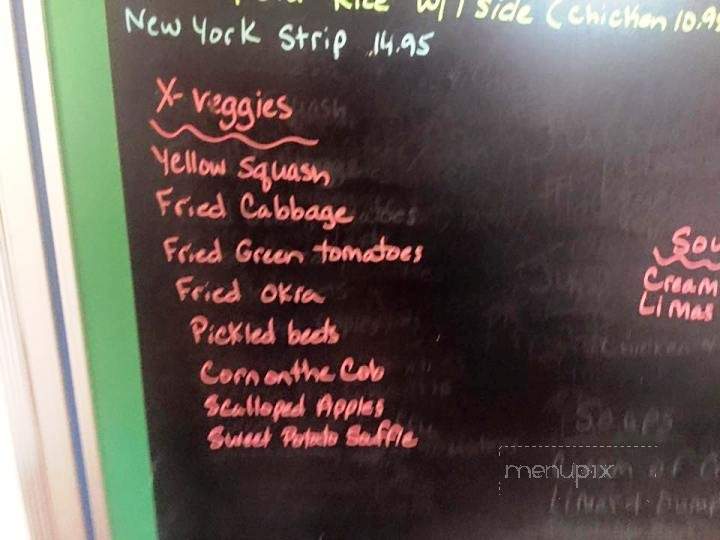 Rice w/1 side (Chicken 10.95
New York Strip 14.95
X-veggies
Yellow Squash
Fried Cabbage
Fried Green tomatoes
Fried okra
Pickled beets
Corn on the Cob
Scalloped Apples
Sweet Potato Souffle
Sou
Cream
Limas
Soups
menupix